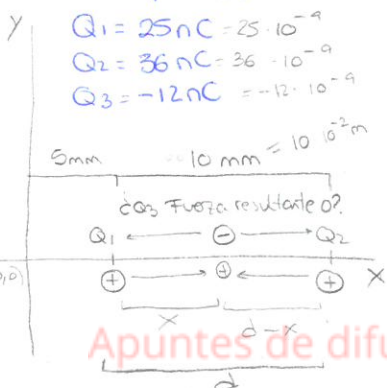 Y
Q1 = 25nC = 25 · 10⁻⁹
Q2 = 36nC = 36 · 10⁻⁹
Q3 = -12nC = -12 · 10⁻⁹
5mm 10 mm = 10 10⁻² m
¿Q3 Fuerza resultante 0?
Q1 ⊖ Q2
,0) ⊕ ⊕ ⊕ X
x d-x
d
Apuntes de difu